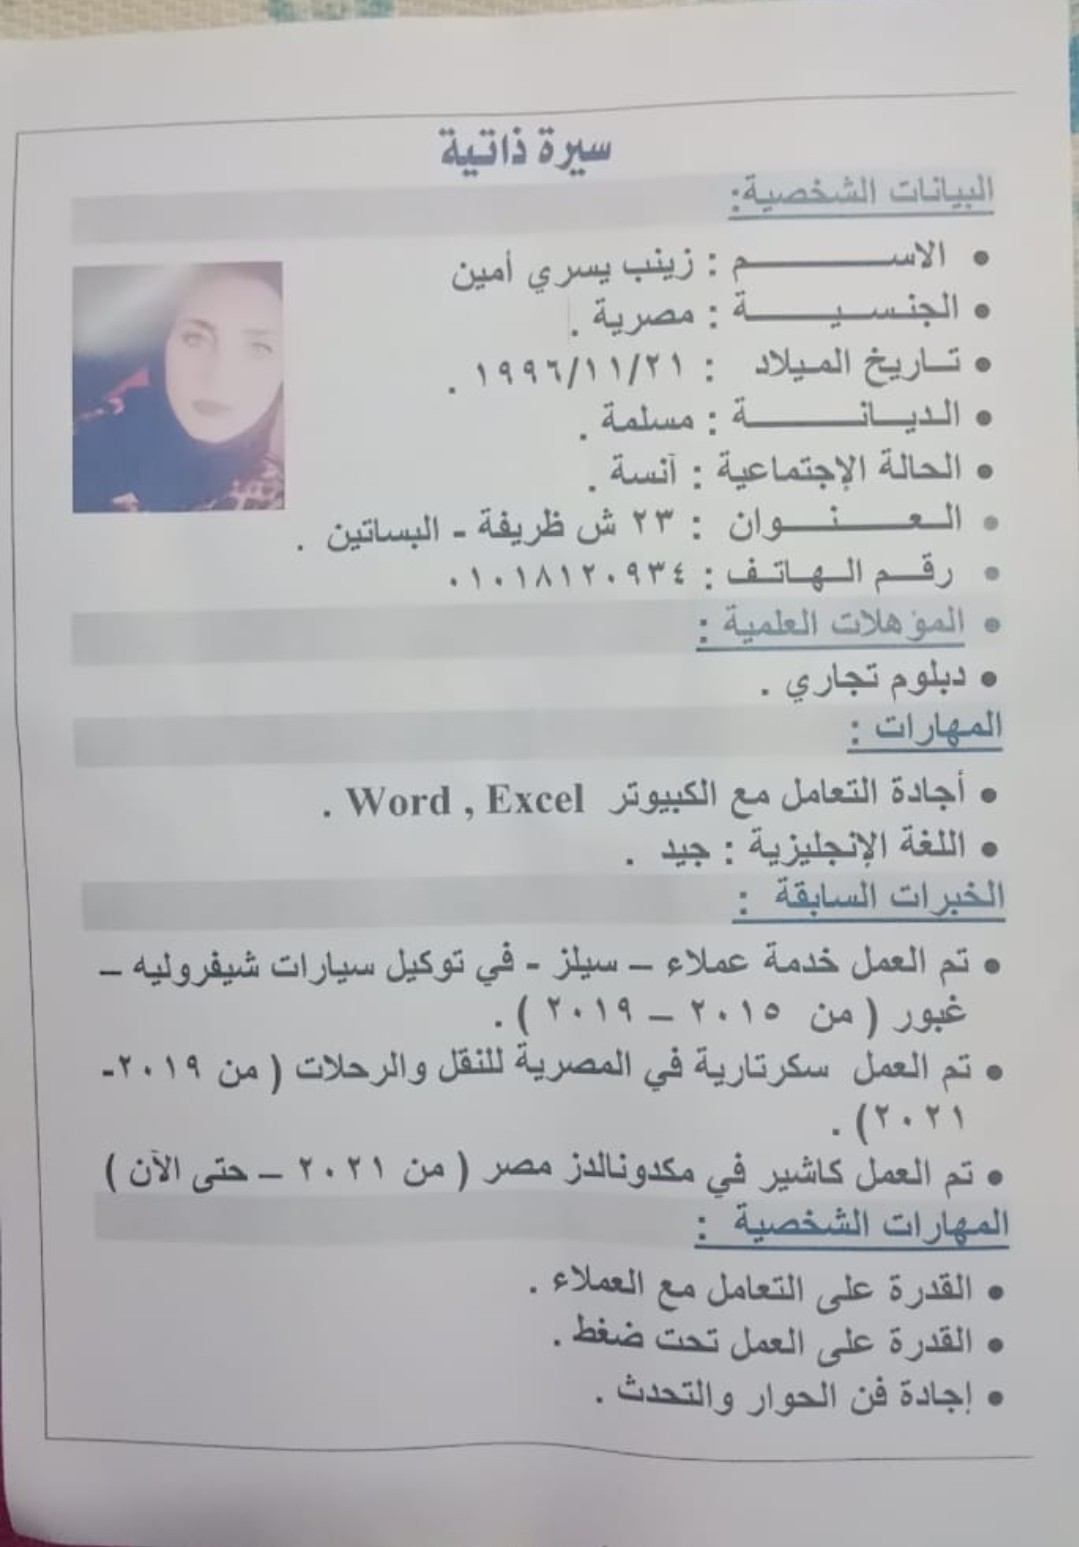 سيرة ذاتية
البيانات الشخصية:
• الاســـــــــم : زينب يسري أمين
• الجنـســيـــــــة : مصرية .
• تـــاريخ الميـلاد : ١٩٩٦/١١/٢١ .
• الـديـانـــــــــة : مسلمة .
• الحالة الإجتماعية : آنسة .
• الـعـــــنـــــوان : ٢٣ ش ظريفة - البساتين .
• رقـــم الـــهـاتــف : ٠١٠١٨١٢٠٩٣٤
• المؤهلات العلمية :
• دبلوم تجاري .
المهارات :
• أجادة التعامل مع الكبيوتر Word , Excel .
• اللغة الإنجليزية : جيد .
الخبرات السابقة :
• تم العمل خدمة عملاء – سيلز - في توكيل سيارات شيفروليه –
غبور ( من ٢٠١٥ – ٢٠١٩ ) .
• تم العمل سكرتارية في المصرية للنقل والرحلات ( من ٢٠١٩-
٢٠٢١) .
• تم العمل كاشير في مكدونالدز مصر ( من ٢٠٢١ – حتى الآن )
المهارات الشخصية :
• القدرة على التعامل مع العملاء .
• القدرة على العمل تحت ضغط .
• إجادة فن الحوار والتحدث .